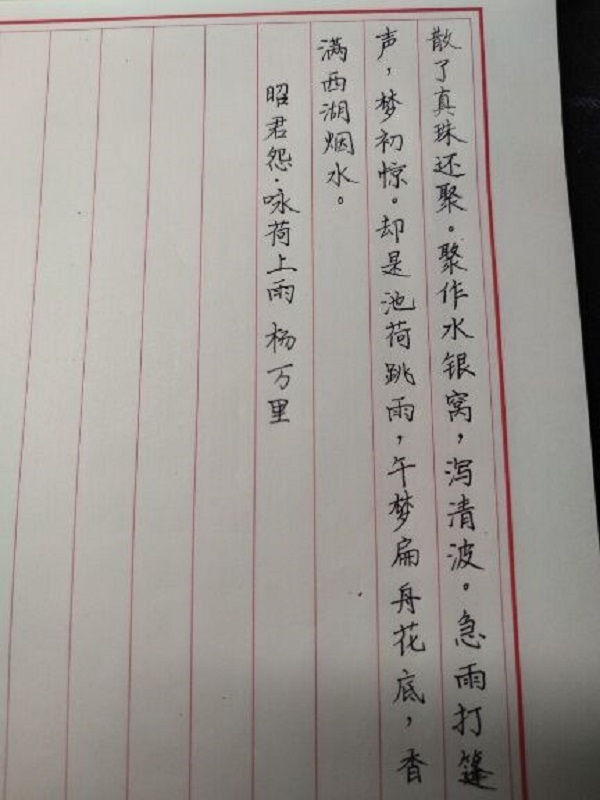 散了真珠还聚。聚作水银窝，泻清波。急雨打篷
声，梦初惊。却是池荷跳雨，午梦扁舟花底，香
满西湖烟水。
昭君怨·咏荷上雨 杨万里